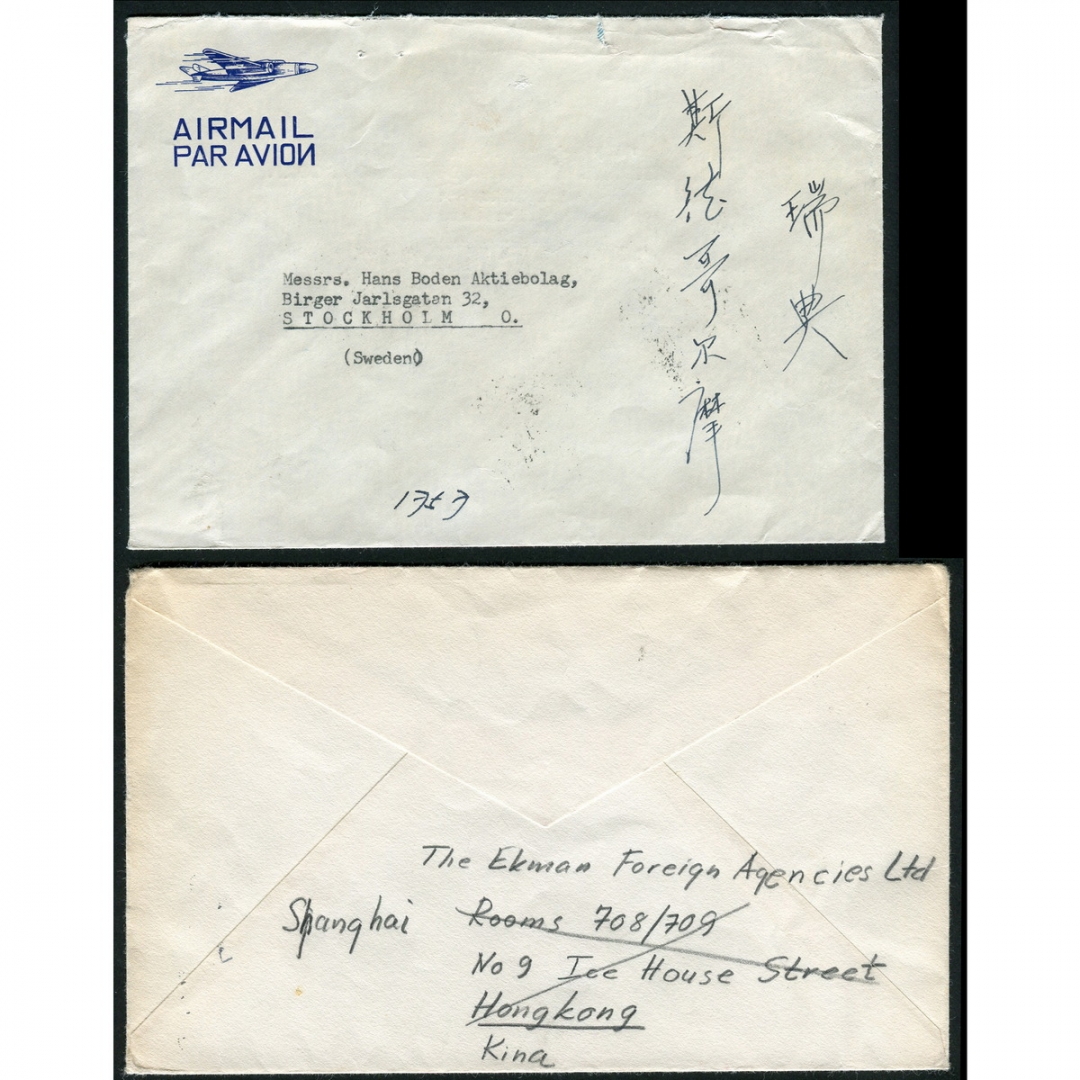 AIRMAIL
PAR AVION
Messrs. Hans Boden Aktiebolag,
Birger Jarlsgatan 32,
STOCKHOLM O.
(Sweden)
瑞典
斯德哥尔摩
The Ekman Foreign Agencies Ltd
Shanghai Rooms 708/709
No 9 Ice House Street
Hongkong
Kina